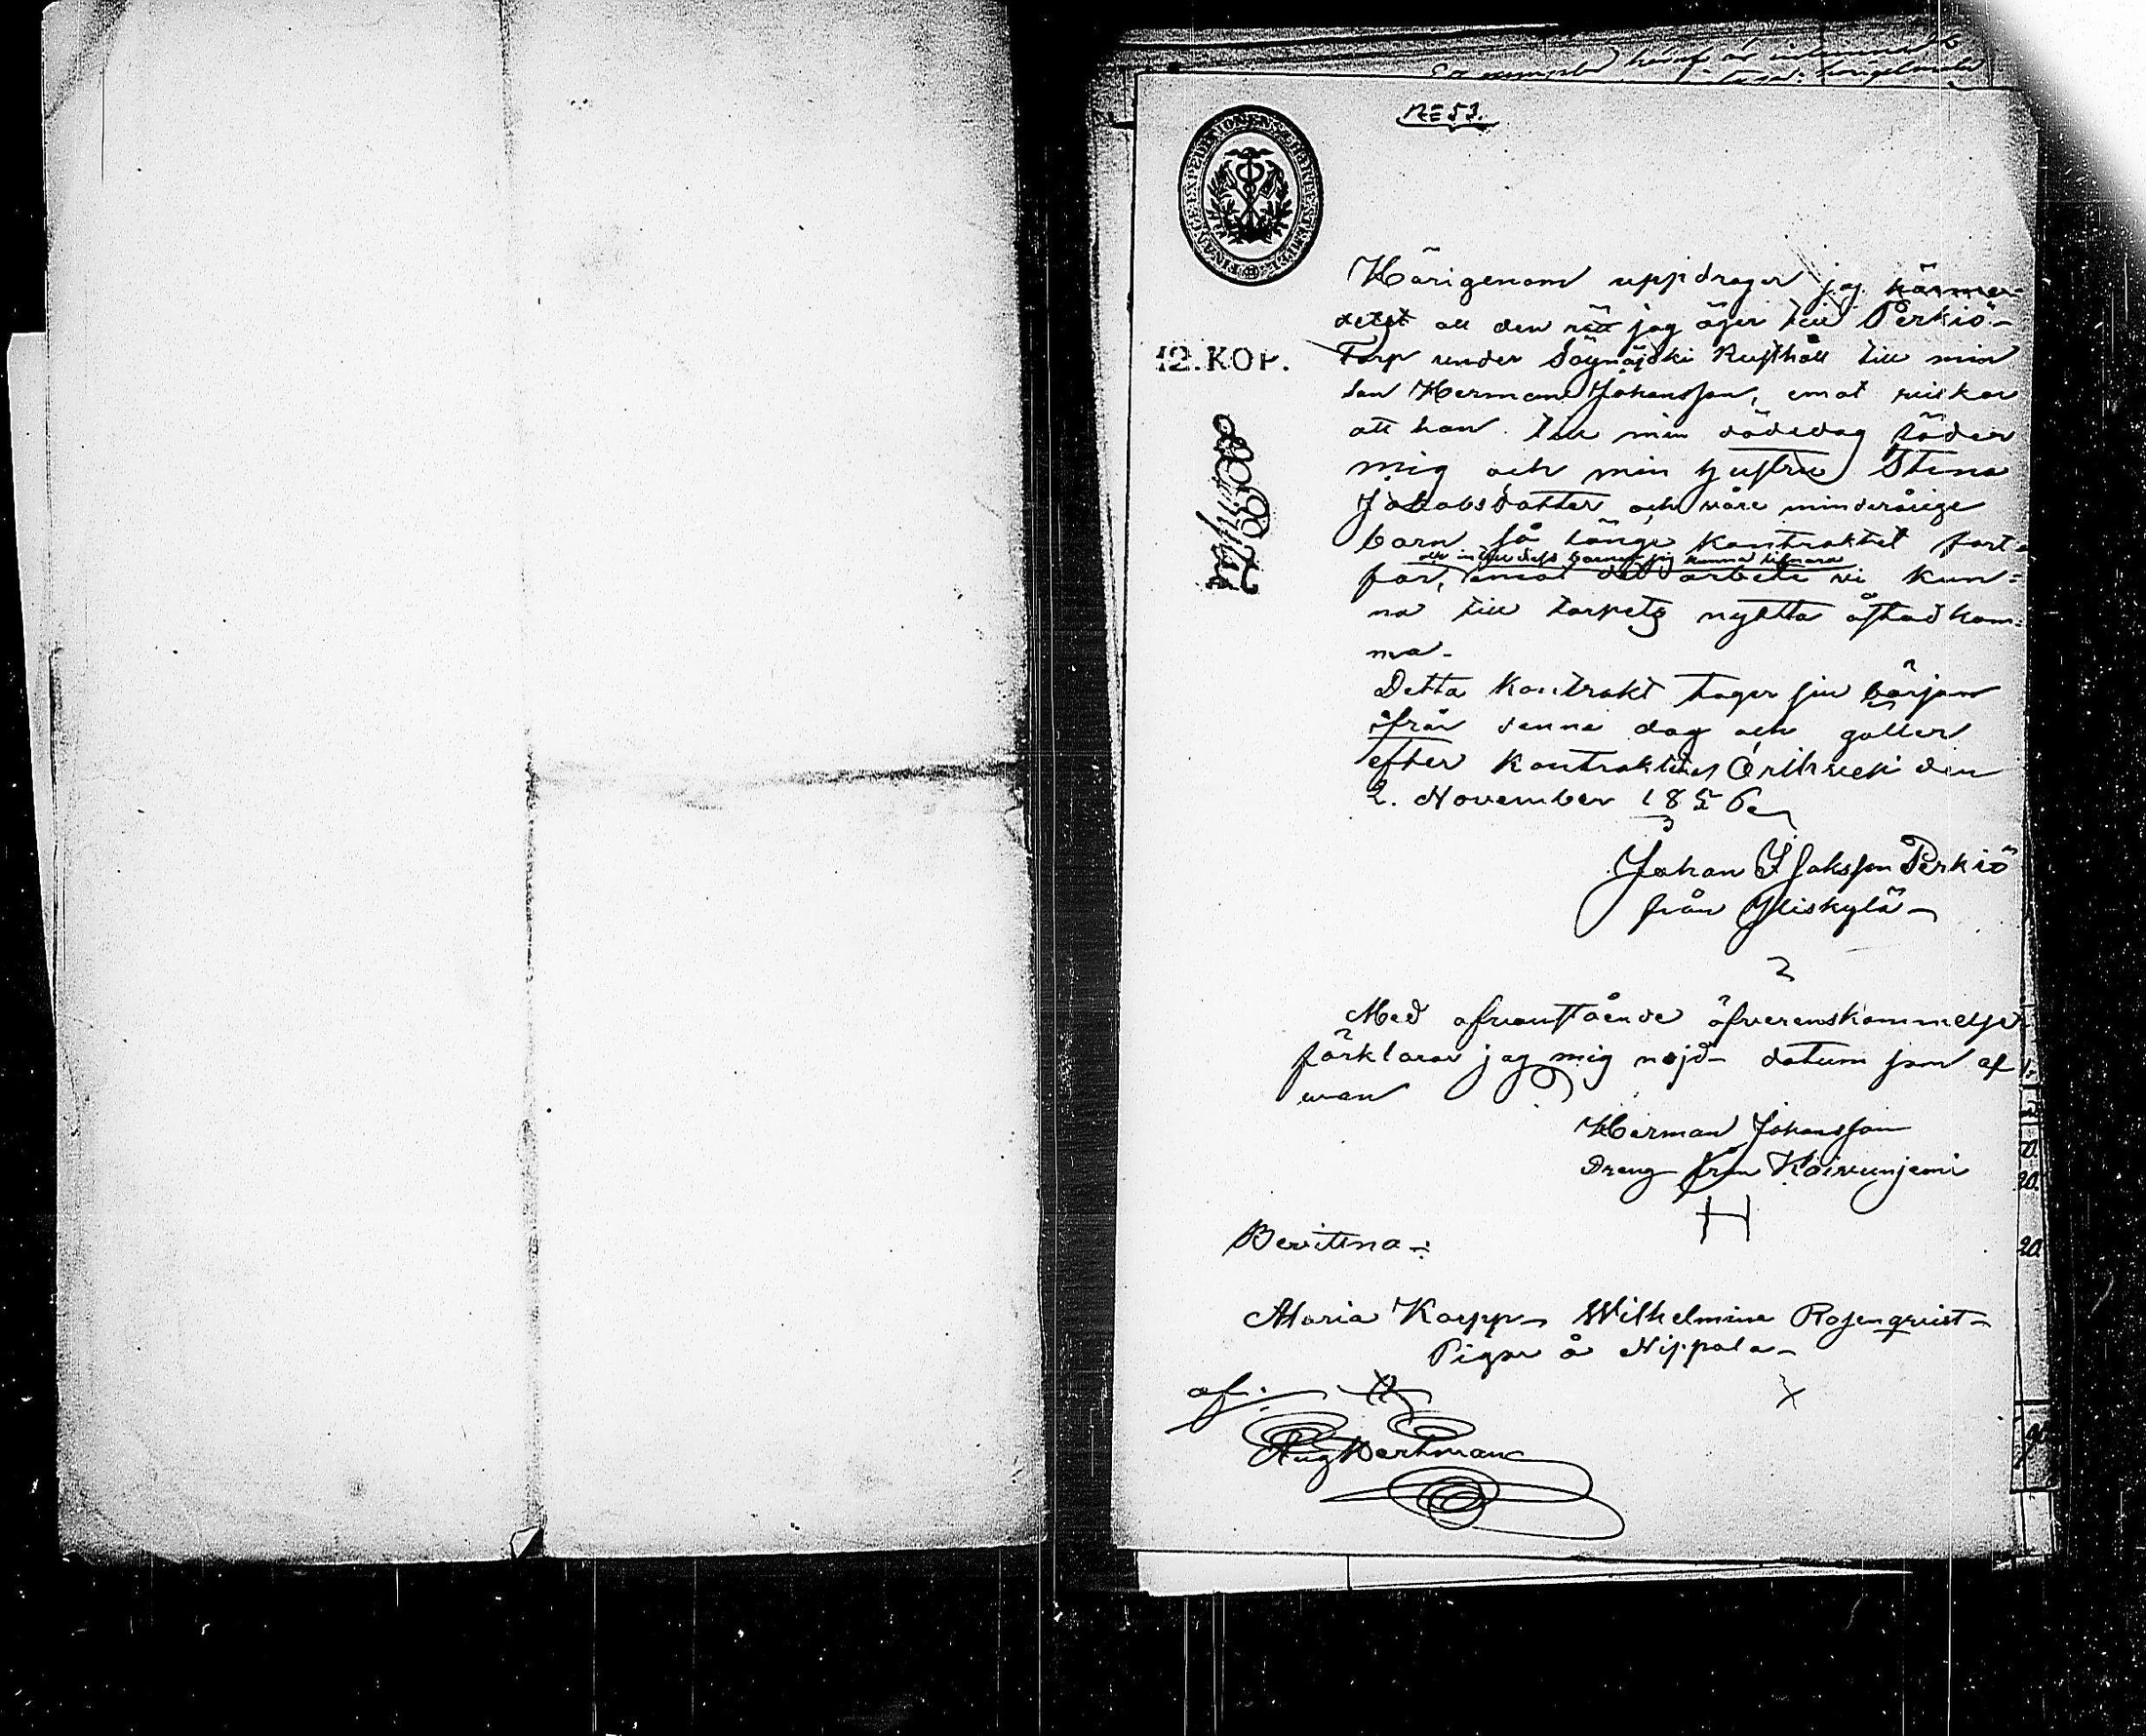 № 53.
FINANCE EXPEDITIONENS CHARTÆ STEMPEL
12. KOP.
Härigenom uppdrager jag härmed-
detst all den rätt jag äger till Perkiö-
Torp under Söynäjoki Rusthåll till min
son Herman Johansson, emot
att han till min dödedag föder
mig och min hustru Stina
Jakobsdotter och våre minderårige
barn så länge kontraktet fort-
far, emot det arbete vi kun=
na till torpets nytta åstadkom=
ma.
Detta Kontrakt tager sin början
ifrån denna dag och gäller
efter kontraktets Orihveh den
2. November 1856
Johan Isaksson Perkiö
från Yliskylä
Med ofvanstående öfverenskommelse
förklarar jag mig nöjd datum som of
wan
Herman Johansson
Dreng från Koivunjemi
H
Bevittna:
Maria Karpp Wilhelmina Rosenqvist
Pigor å Nippala
af:
Aug Wertman